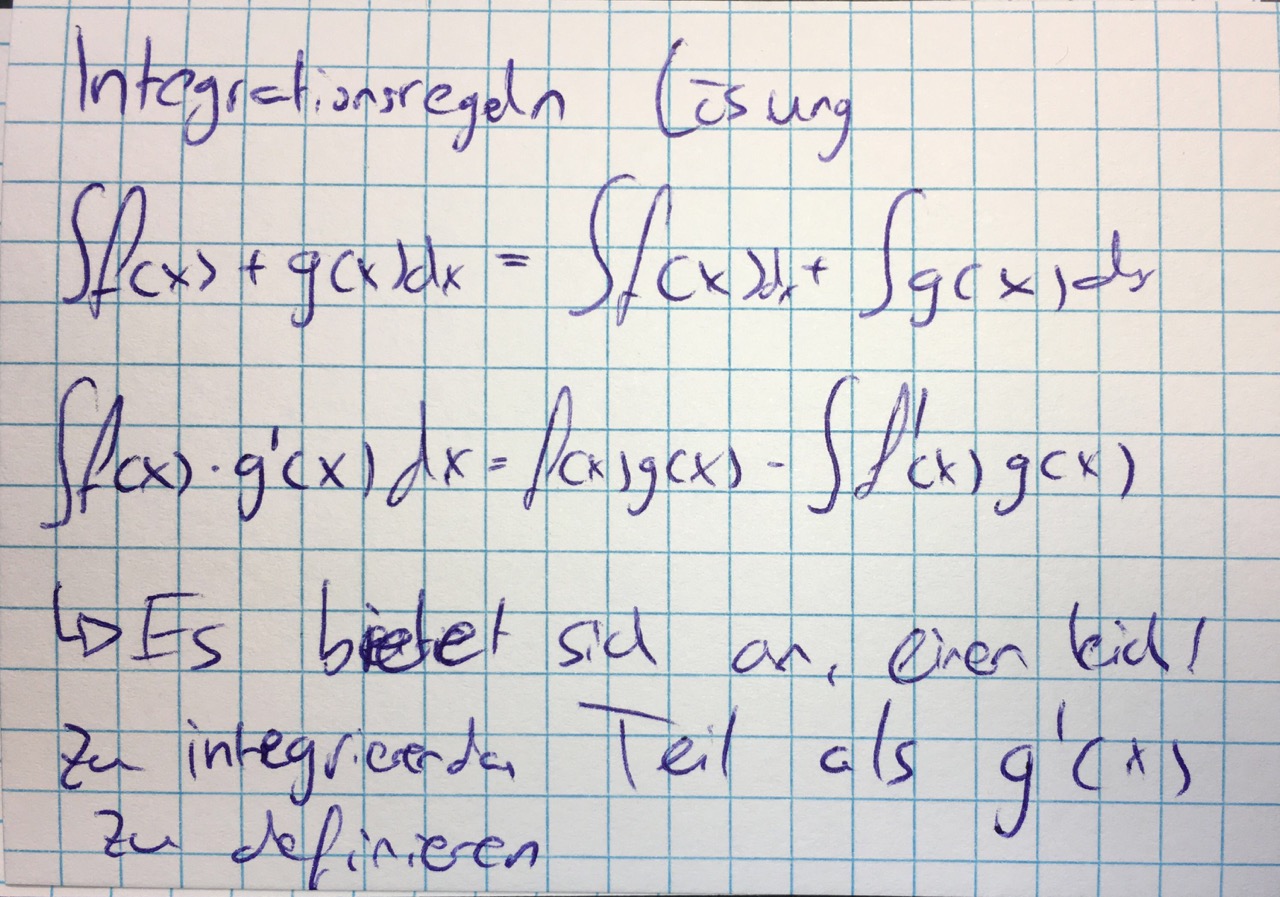 Integrationsregeln Lösung
∫f(x) + g(x)dx = ∫f(x)dx + ∫g(x)dx
∫f(x) · g'(x) dx = f(x)g(x) - ∫f'(x)g(x)
↳ Es bietet sich an, einen leicht
zu integrierenden Teil als g'(x)
zu definieren